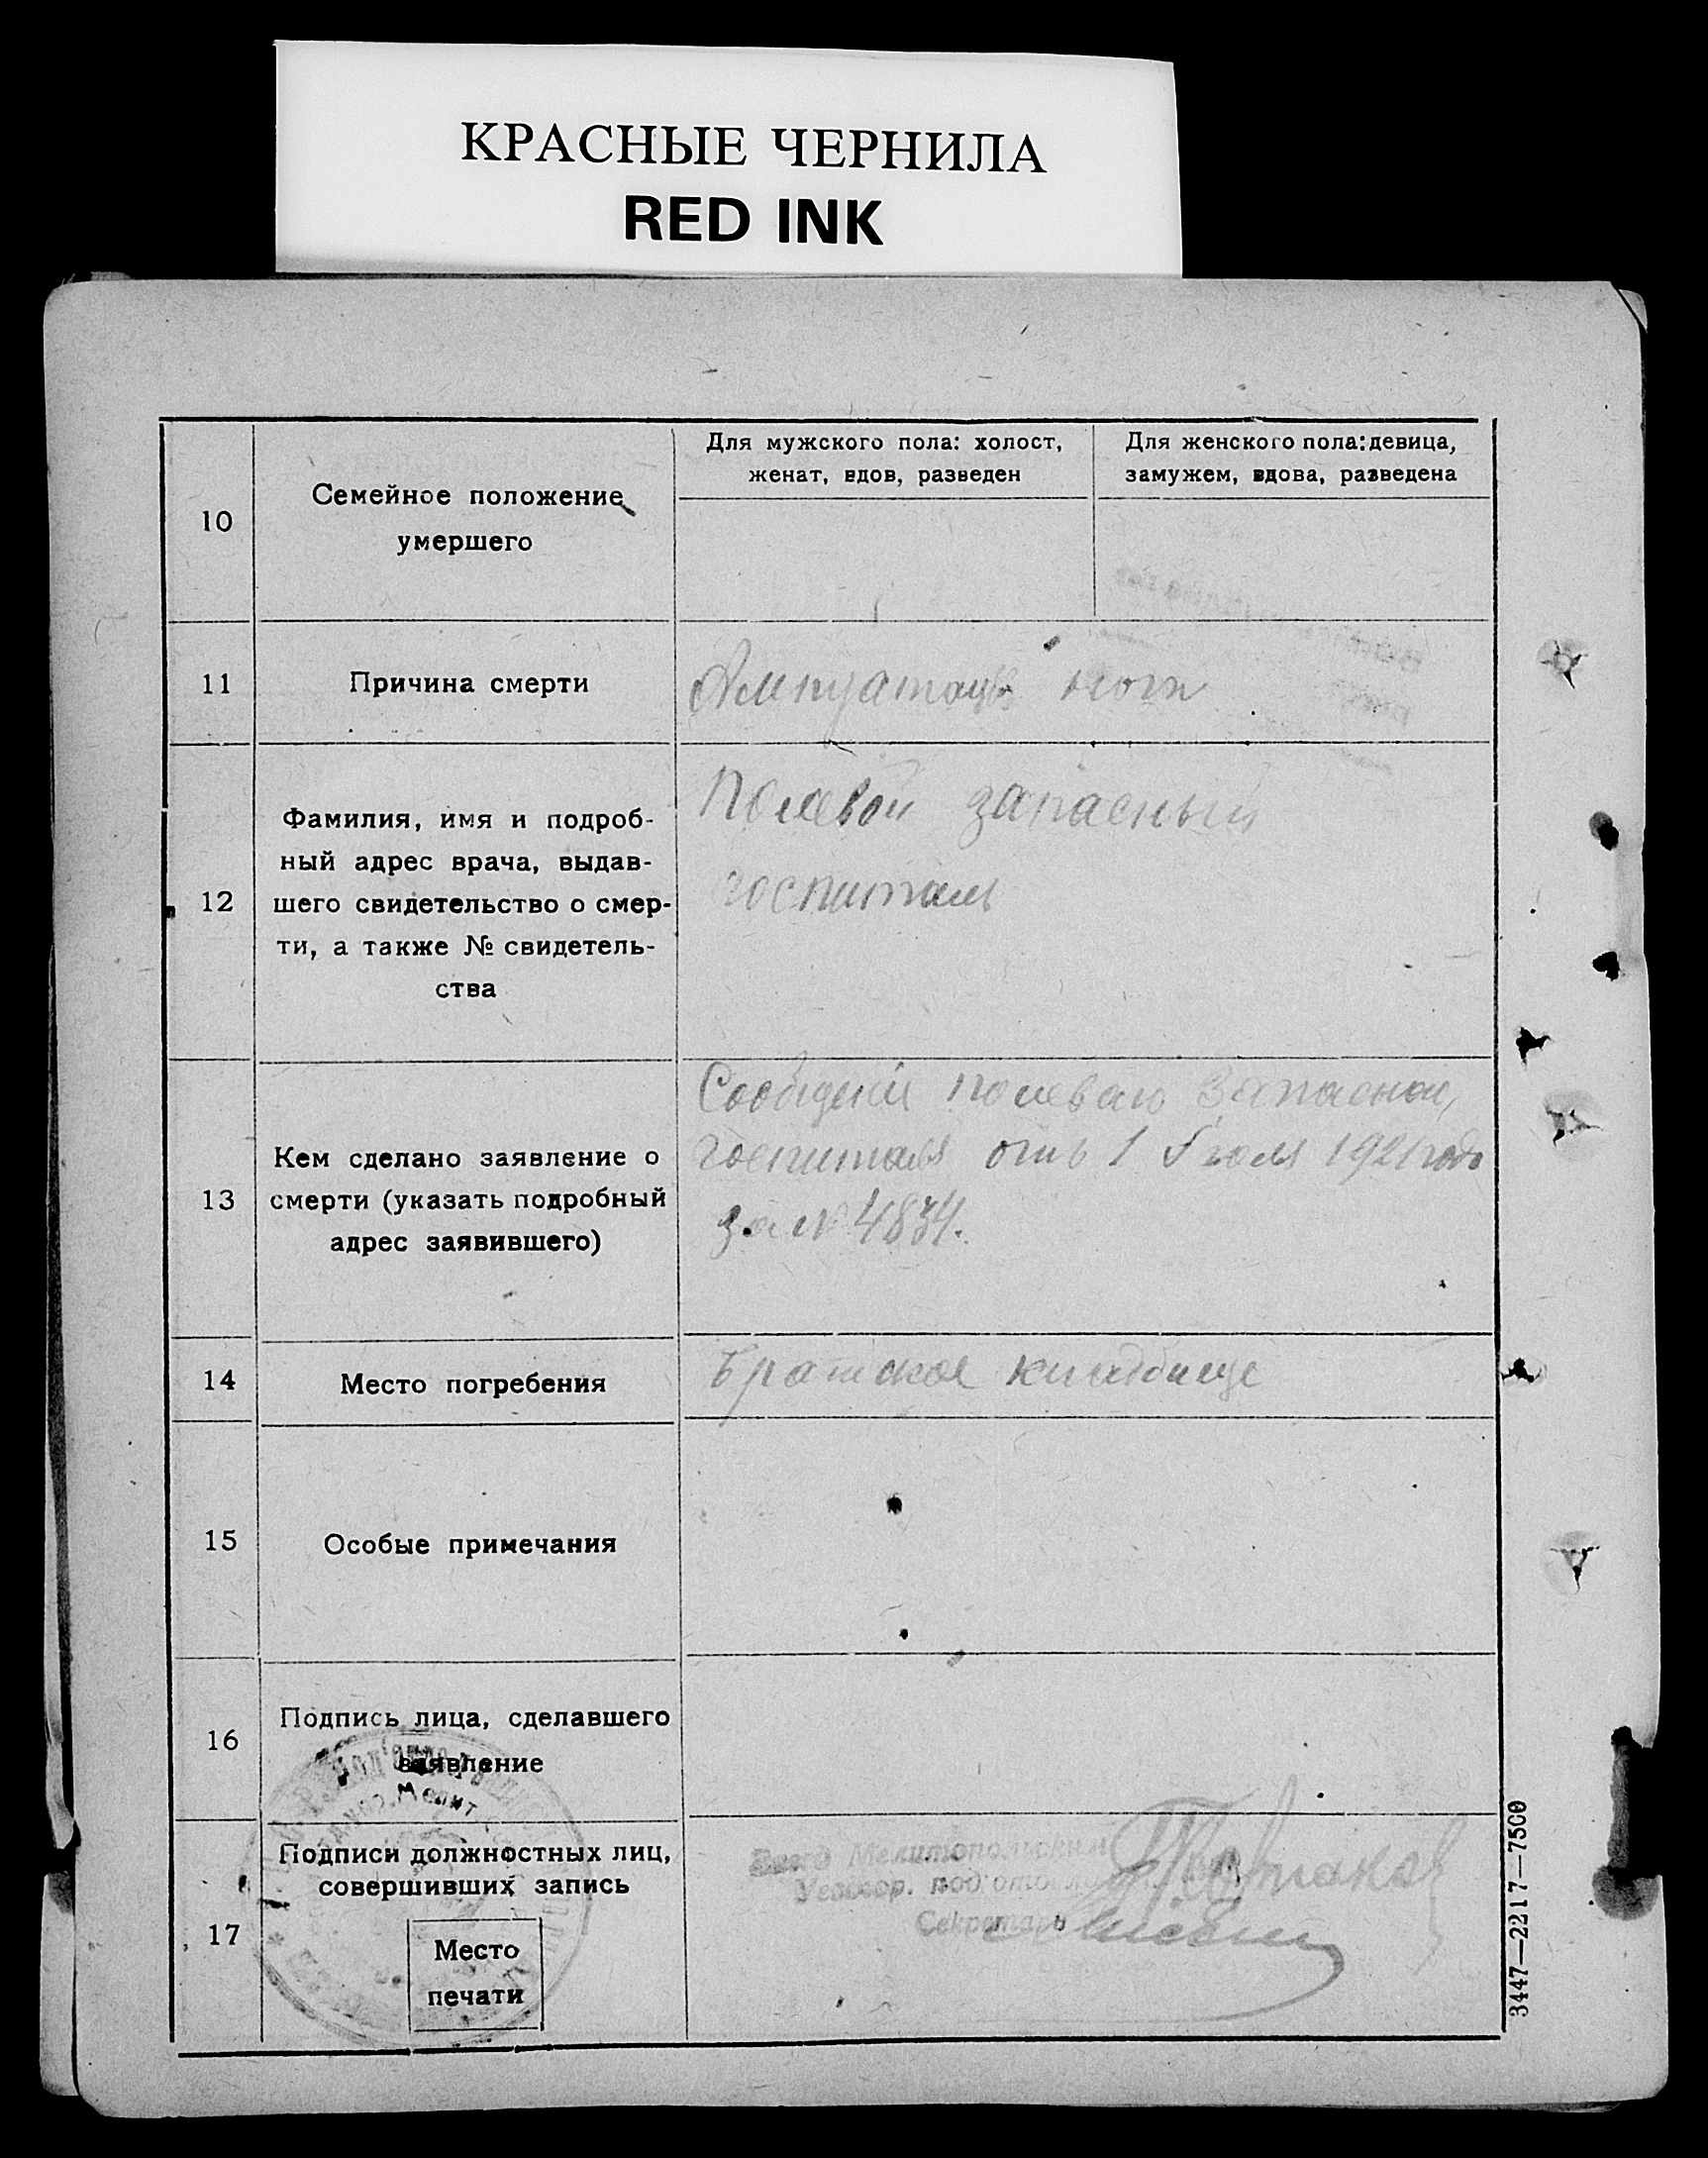 КРАСНЫЕ ЧЕРНИЛА
RED INK
10
Семейное положение
умершего
Для мужского пола: холост,
женат, вдов, разведен
Для женского пола: девица,
замужем, вдова, разведена
11
Причина смерти
Ампутация ноги
12
Фамилия, имя и подроб-
ный адрес врача, выдав-
шего свидетельство о смер-
ти, а также № свидетель-
ства
Полевой запасный
госпиталь
13
Кем сделано заявление о
смерти (указать подробный
адрес заявившего)
полеваго
госпиталя отъ 1 Іюля 1921 года
за № 4834.
14
Место погребения
Братское кладбище
15
Особые примечания
16
Подпись лица, сделавшего
заявление
17
Подписи должностных лиц,
совершивших запись
Место
печати
Мелитопольским
под
Секретарь
3447—2217—7500